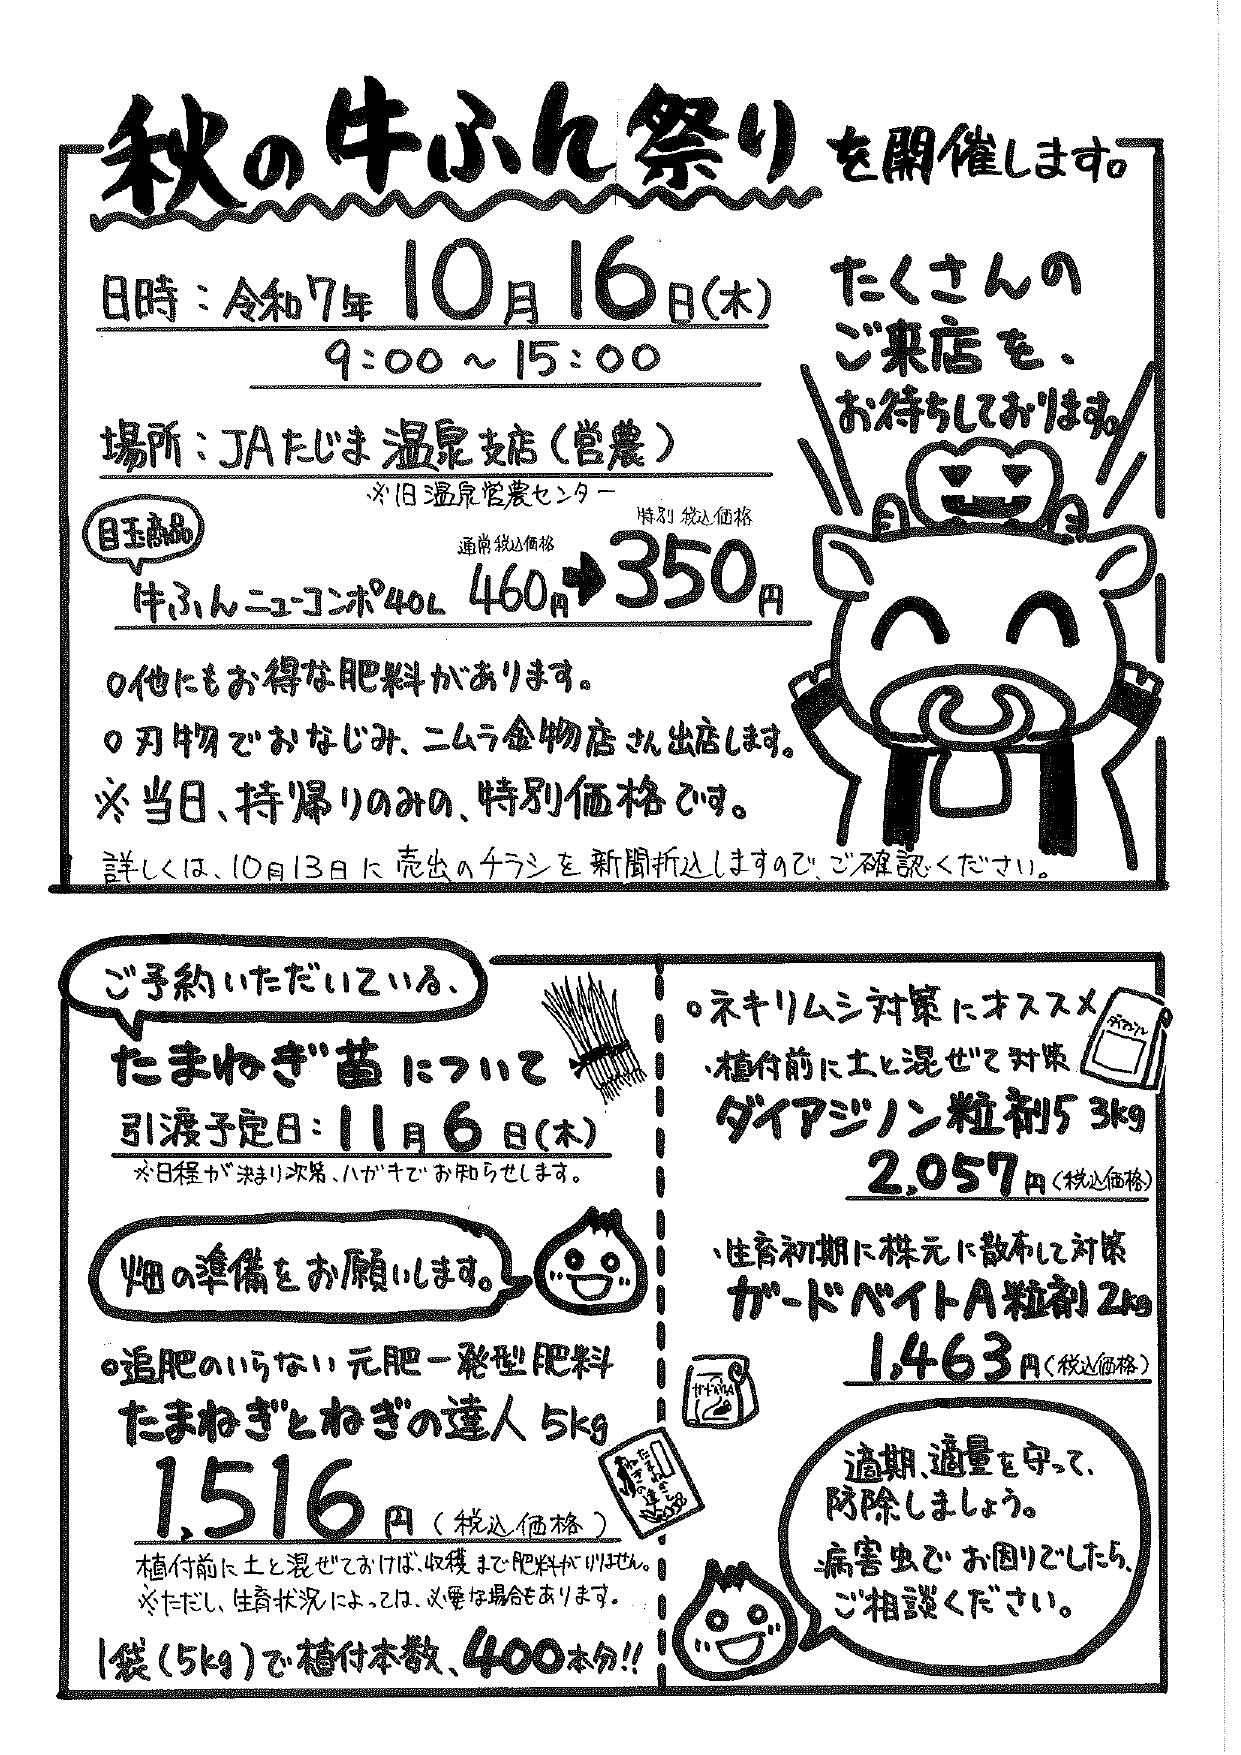 秋の牛ふん祭りを開催します。
日時：令和7年10月16日(木)
9:00～15:00
たくさんの
ご来店を、
お待ちしております。
場所：JAたじま温泉支店(営農)
※旧温泉営農センター
目玉商品
通常税込価格
特別税込価格
牛ふんニューコンポ40L 460円➡350円
○他にもお得な肥料があります。
○刃物でおなじみ、ニムラ金物店さん出店します。
※当日、持帰りのみの、特別価格です。
詳しくは、10月13日に売出のチラシを新聞折込しますので、ご確認ください。
ご予約いただいている、
たまねぎ苗について
引渡予定日：11月6日(木)
※日程が決まり次第、ハガキでお知らせします。
畑の準備をお願いします。
○追肥のいらない元肥一発型肥料
たまねぎとねぎの達人5kg
1,516円(税込価格)
たまねぎとねぎの達人
植付前に土と混ぜておけば、収穫まで肥料がいりません。
※ただし、生育状況によっては、必要な場合もあります。
1袋(5kg)で植付本数、400本分!!
○ネキリムシ対策にオススメ
・植付前に土と混ぜて対策
ダイアジノン粒剤5 3kg
2,057円(税込価格)
・生育初期に株元に散布して対策
ガードベイトA粒剤2kg
1,463円(税込価格)
ガードベイトA
適期、適量を守って、
防除しましょう。
病害虫でお困りでしたら、
ご相談ください。